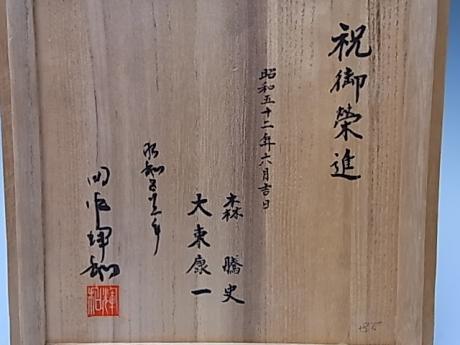 祝御榮進
昭和五十二年六月吉日
森 騰史
大東康一
昭和五
年
同作